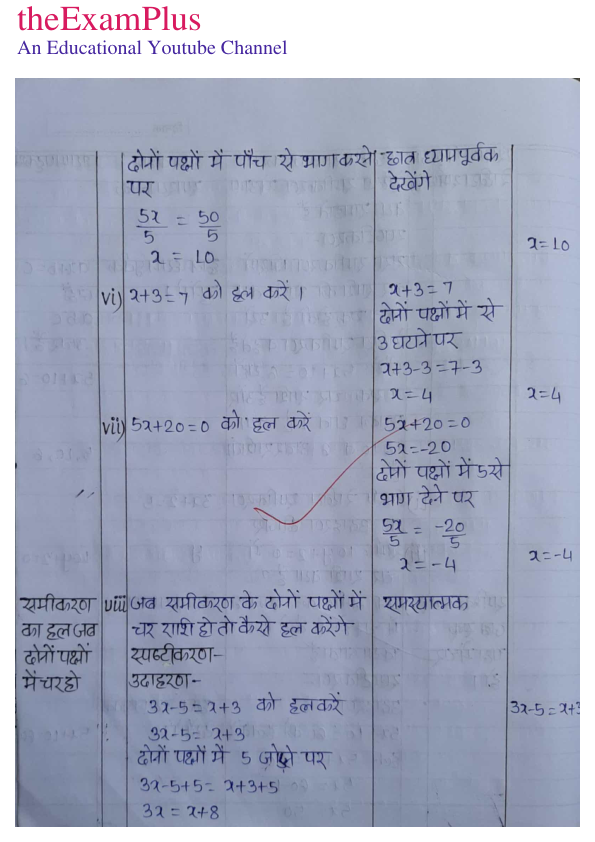 theExamPlus
An Educational Youtube Channel
दोनों पक्षों में पाँच से भाग करने
पर
5x/5 = 50/5
x = 10
छात्र ध्यानपूर्वक
देखेंगे
x=10
vi) x+3=7 को हल करें।
x+3=7
दोनों पक्षों में से
3 घटाने पर
x+3-3=7-3
x=4
x=4
vii) 5x+20=0 को हल करें
5x+20=0
5x=-20
दोनों पक्षों में 5 से
भाग देने पर
5x/5 = -20/5
x=-4
x=-4
समीकरण
का हल जब
दोनों पक्षों
में चर हो
viii) जब समीकरण के दोनों पक्षों में
चर राशि हो तो कैसे हल करेंगे
स्पष्टीकरण-
उदाहरण-
3x-5=x+3 को हल करें
3x-5=x+3
दोनों पक्षों में 5 जोड़ने पर
3x-5+5= x+3+5
3x = x+8
समस्यात्मक
3x-5=x+3